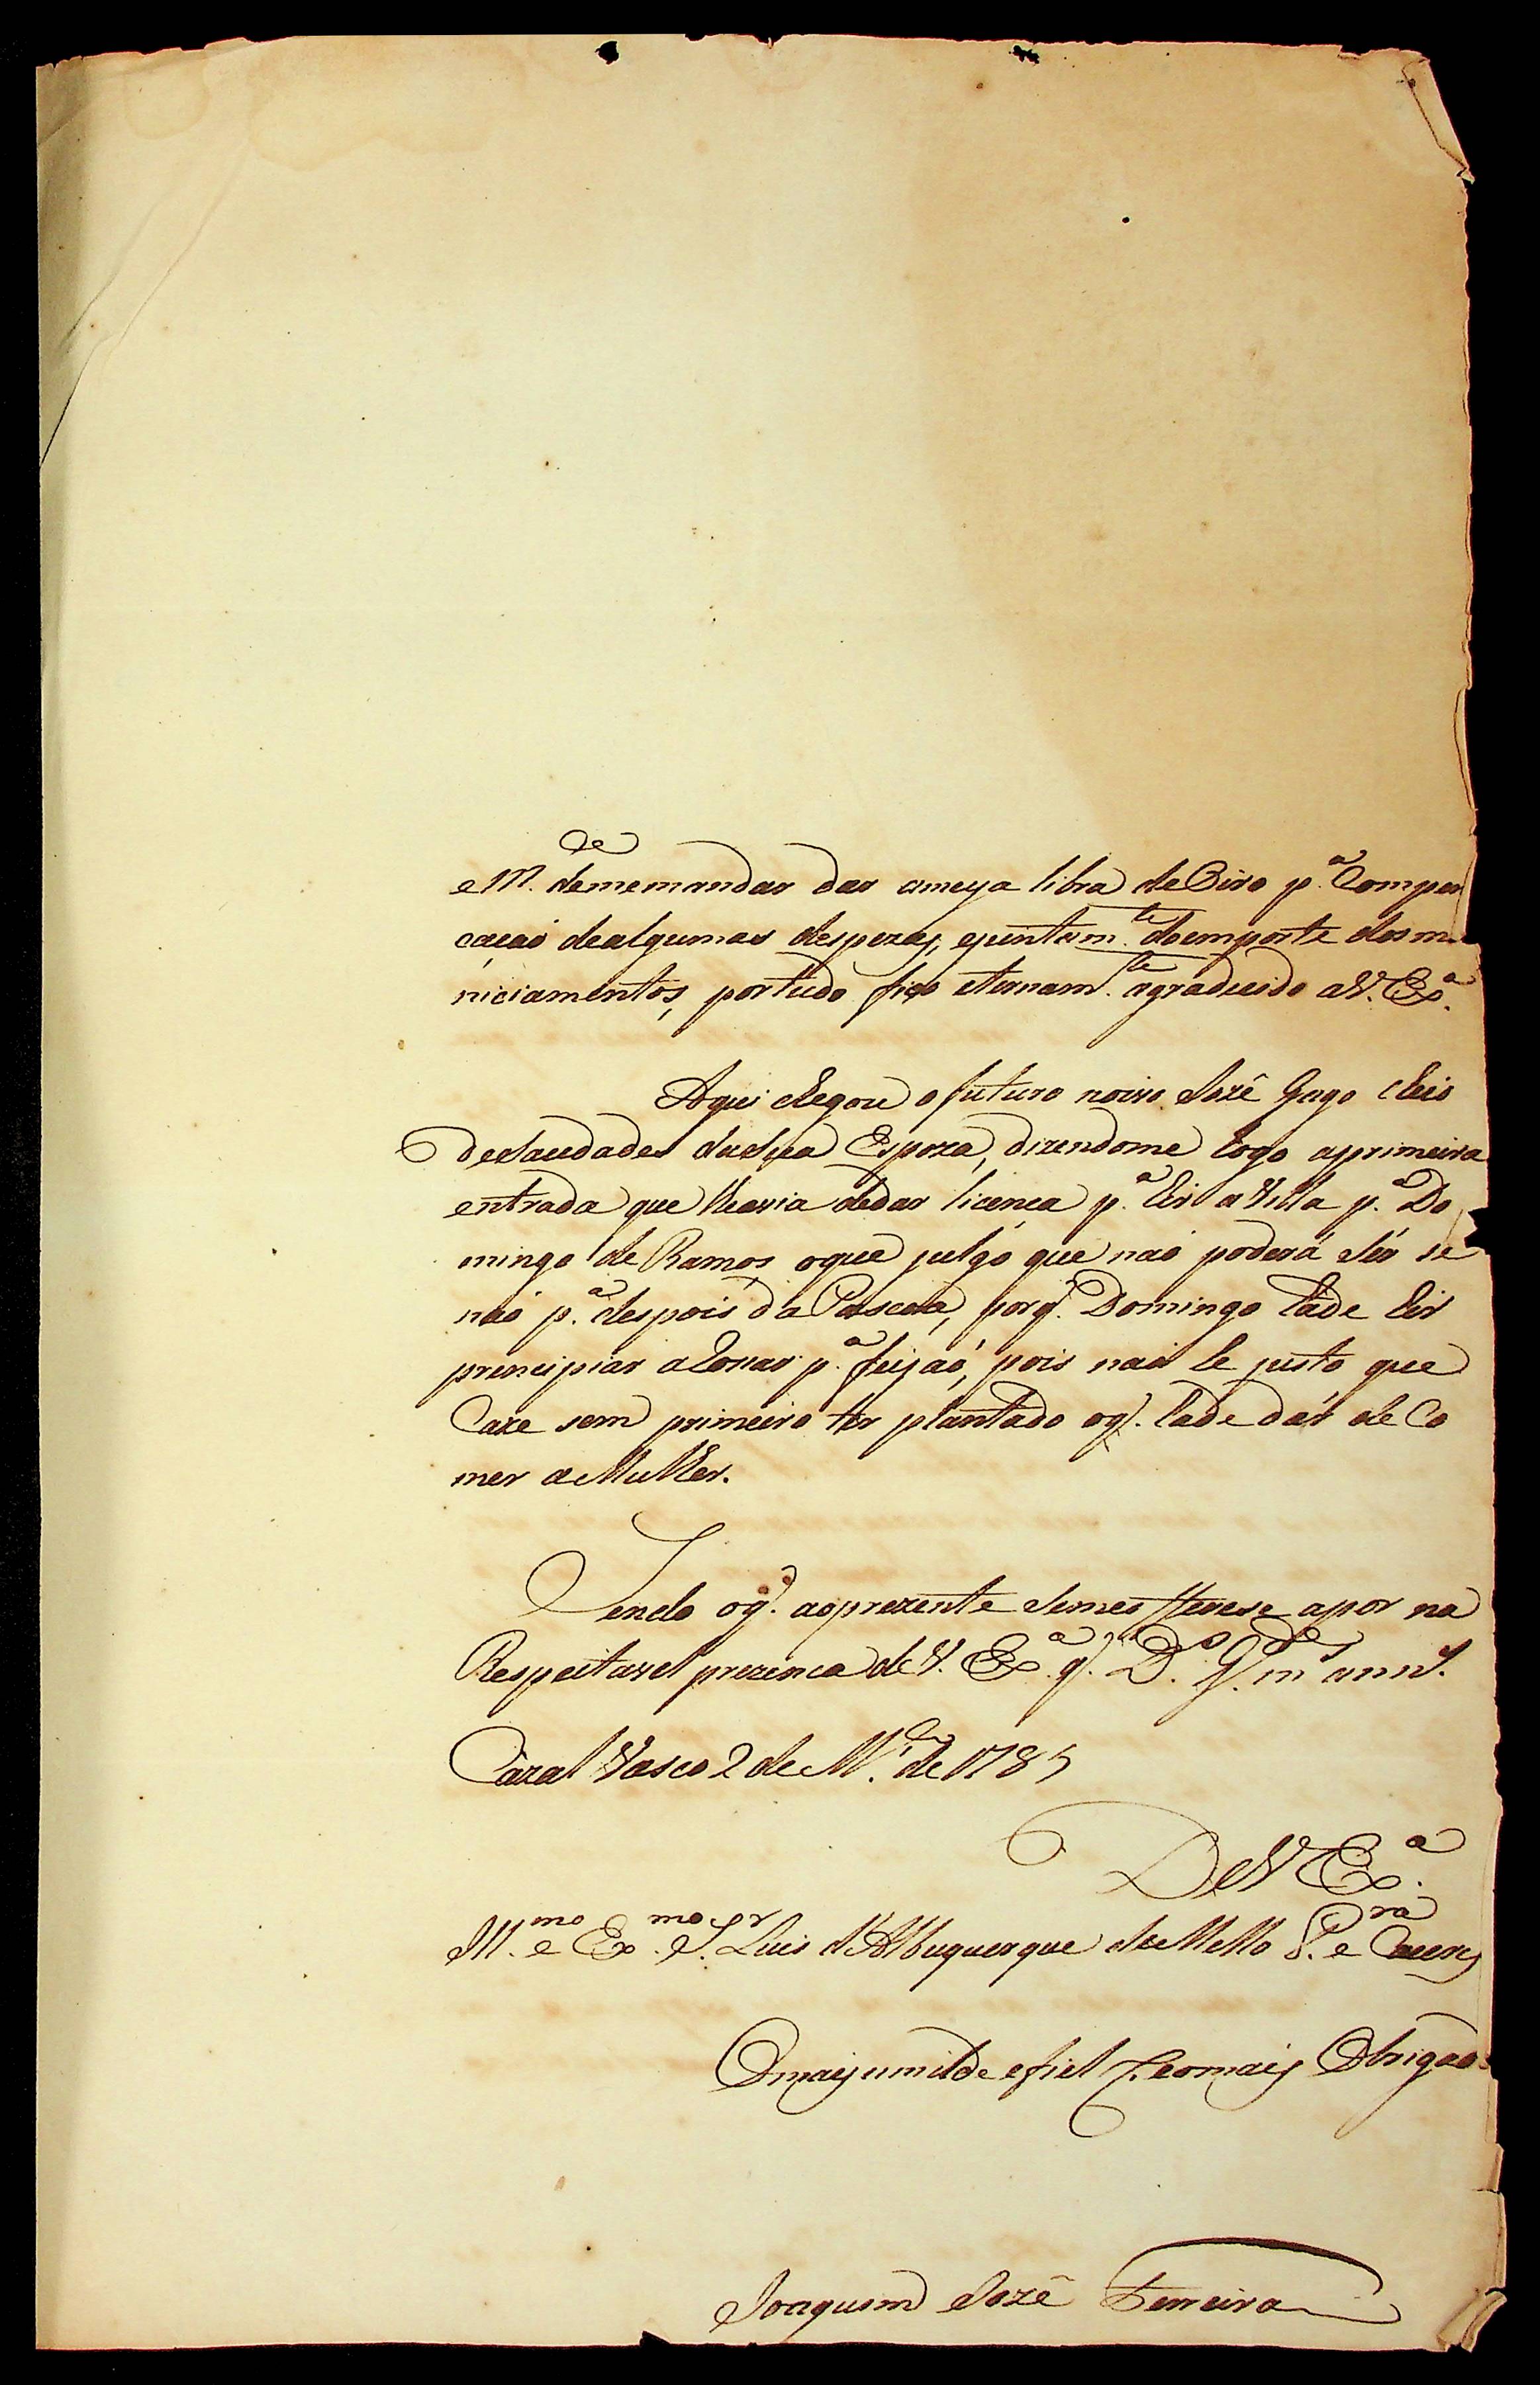 e M.de dememandar dar ameya libra de Oiro p.a Compen
cação dealgumas despezas, ejuntam.te doemporte dosmu
niciamentos, portudo fico eternam.te agradecido aV. Ex.a
Aqui chegou o futuro noivo Jozê Gago cheio
deSaudades dasua Espoza, dizendome logo aprimeira
entrada que lheavia dedar licença p.a hir a Villa p.a Do
mingo de Ramos oque julgo que naó poderá Sér se
naó p.a despois da Pascoa, porq. Domingo hade hir
principiar a Rossar p.a feijaó, pois naó he justo que
Caze sem primeiro ter plantado oq. hade dár de Co
mer a Mulher.
Sendo oq. aoprezente Semes offerese apor na
Respeitavel prezença de V. Ex.a q. D.s G.de m.s ann.s
Cazal Vasco 2 de M.ço de 1785
De V Ex.a
Ill.mo e Ex.mo S.r Luis d'Albuquerque de Mello P.ra e Caceres
Omais umilde efiel S. eomais Obrigado
Joaquim Jozê Ferreira